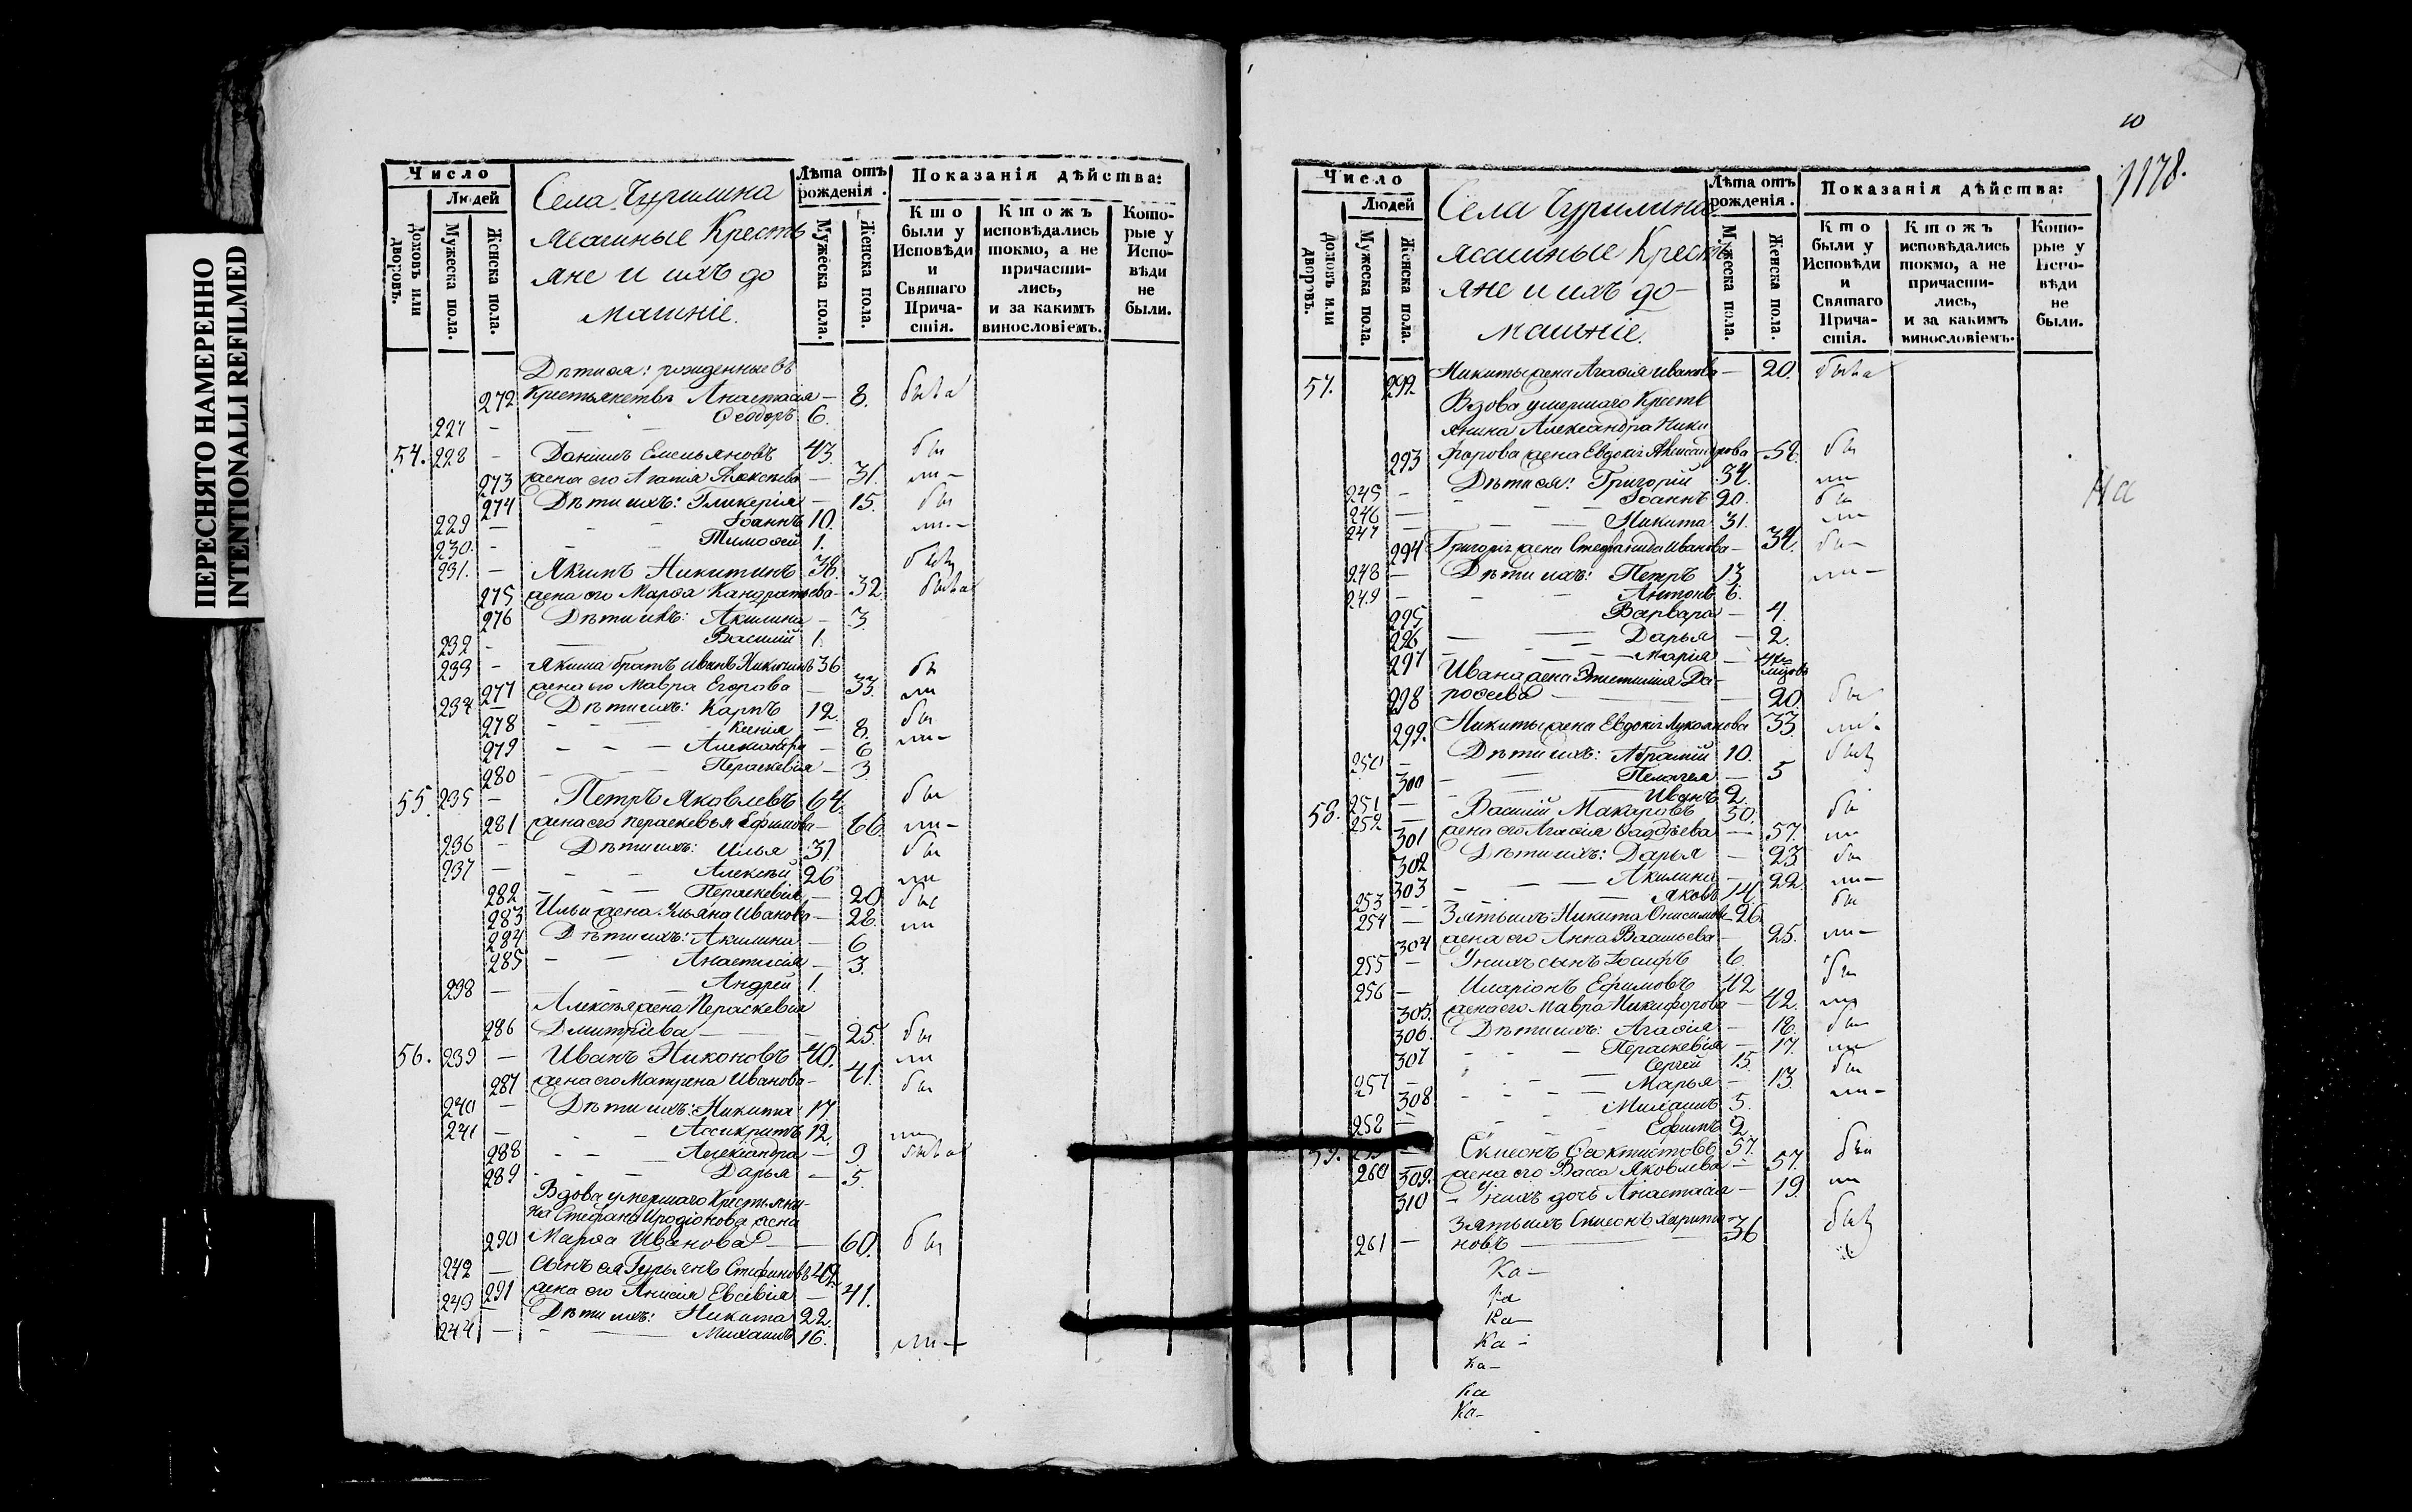 ПЕРЕСНЯТО НАМЕРЕННО
INTENTIONALLI REFILMED
Число
Людей
домовъ или дворовъ.
Мужеска пола.
Женска пола.
Села Чурилина
ясашные Кресть
яне и ихъ до
машніе.
Лѣта отъ рожденія.
Мужеска пола.
Женска пола.
Показанія дѣйства:
Кто были у Исповѣди и Святаго Причастія.
Ктожъ исповѣдались токмо, а не причастились, и за какимъ винословіемъ.
Которые у Исповѣди не были.
Дѣти ея: рожденные въ
272 Крестьянствѣ Анастасія — 8. была
227 — Ѳеодоръ 6.
54. 228 — Даніилъ Емельяновъ 43. бы
273 жена его Агафія Алексѣева — 31. ли —
274 Дѣти ихъ: Гликерія — 15. бы
229 — Іоаннъ 10. ли —
230. — Тимоѳей 1.
231. — Якимъ Никитинъ 38. былъ
275 жена его Марѳа Кандратьева — 32 была
276 Дѣти ихъ: Акилина — 3.
232 — Василій 1.
233 — Якима братъ Иванъ Никитинъ 36 бы
277 жена его Мавра Егорова — 33. ли
234 — Дѣти ихъ: Карпъ 12. бы
278 — Ксенія — 8. ли —
279 — Александра — 6
280 — Пераскевія — 3
55. 235 — Петръ Яковлевъ 64. бы
281 жена его Пераскевья Ефимова — 66. ли —
236 — Дѣти ихъ: Илья 31. бы
237 — Алексѣй 26 ли
282 — Пераскевія — 20 бы
283 Ильи жена Ульяна Иванова — 28. ли
284 Дѣти ихъ: Акилина — 6
285 — Анастасія — 3.
238 — Андрей 1.
Алексѣя жена Пераскевія
286 Дмитріева — 25. бы
56. 239 — Иванъ Никоновъ 40. ли
287 жена его Матрена Иванова — 41. бы
240 — Дѣти ихъ: Никита 17.
241 — Ассикритъ 12. ли
288 — Александра — 9 была
289 — Дарья — 5.
Вдова умершаго Крестьяни-
на Стефана Иродіонова жена
290 Марѳа Иванова — 60. бы
242 — Сынъ ея Гурьянъ Стефановъ 42
291 жена его Анисія Евсевія — 41.
243 — Дѣти ихъ: Никита 22.
244 — Михаилъ 16. ли —
10
1178.
Число
Людей
домовъ или дворовъ.
Мужеска пола.
Женска пола.
Села Чурилина
ясашные Кресть
яне и ихъ до-
машніе.
Лѣта отъ рожденія.
Мужеска пола.
Женска пола.
Показанія дѣйства:
Кто были у Исповѣди и Святаго Причастія.
Ктожъ исповѣдались токмо, а не причастились, и за какимъ винословіемъ.
Которые у Исповѣди не были.
57. 292 Никиты жена Агафія Иванова — 20. была
Вдова умершаго Кресть
янина Александра Ники
293 форова жена Евдокія Александрова — 52. бы
245 — Дѣти ея: Григорій 34. ли
246 — Іоаннъ 20. бы
247 — Никита 31. ли
294 Григорія жена Стефанида Иванова — 34. бы —
248 — Дѣти ихъ: Петръ 13 ли —
249 — Антонъ 6.
295 Варвара — 4.
296 — Дарья — 2.
297 — Марія —
Ивана жена До-
298 роѳеева — 20. бы
299. Никиты жена Евдокія Лукоянова 33 ли.
250 — Дѣти ихъ: Абрамій 10. былъ
300 — Пелагея — 5
251 — Иванъ 2.
58. 252 — Василій Макаровъ 50. бы
301 жена его Агафія Фаддѣева — 57. ли
302 Дѣти ихъ: Дарья — 23 бы
303 — Акилина — 22. ли —
253 — Яковъ 14. бы
254 — Зять ихъ Никита Онисимовъ 26.
304 жена его Анна Васильева — 25. ли —
255 — У нихъ сынъ Іосифъ 6.
256 — Иларіонъ Ефимовъ 42 бы
305. жена его Мавра Никифорова — 42. ли
306. Дѣти ихъ: Агафія — 18. бы
307 — Пераскевія — 17. ли
257 — Сергей 15. бы
308 — Марья — 13 ли —
Михаилъ 5.
258 — Ефимъ 2.
59. 259 — Симеонъ Ѳеоктистовъ 57. бы
260 309. жена его Васса Яковлева — 57. ли
310 — У нихъ дочь Анастасія — 19.
Зять ихъ Симеонъ Харито-
261 — новъ — 36 былъ
На
Ка —
Ка
Ка —
Ка —
Ка —
Ка
Ка —